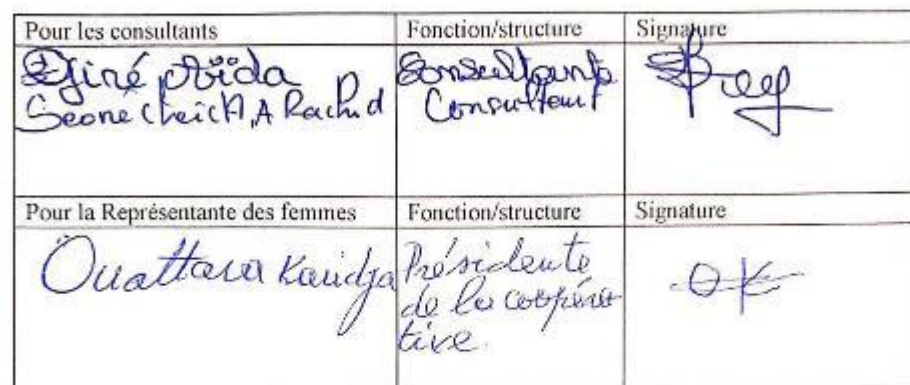 Pour les consultants Fonction/structure Signature
Djiré Aïda Consultante
Seone Cheick A, A Rachid Consultant
Pour la Représentante des femmes Fonction/structure Signature
Ouattara Karidja Présidente
de la coopéra
tive.
OK